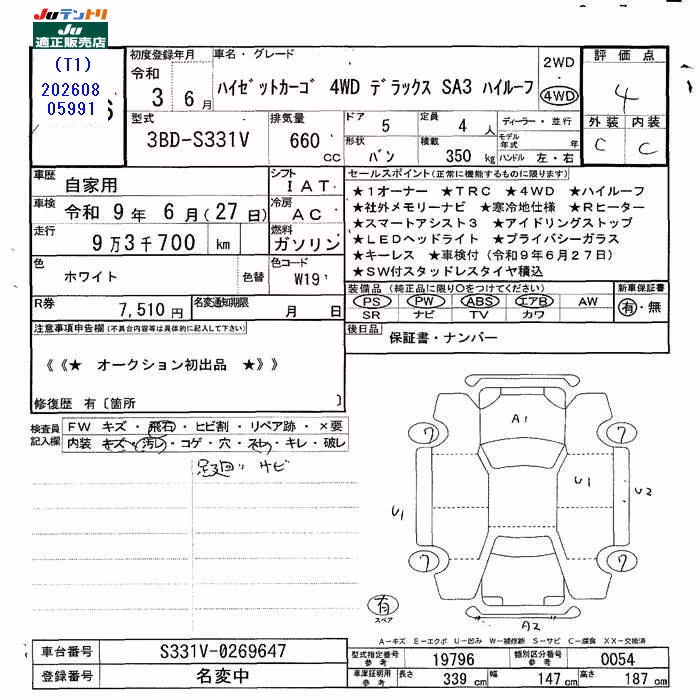 Juテントリ
Ju
適正販売店
(T1)
202608
05991
初度登録年月
令和
3 6 月
車名・グレード
ハイゼットカーゴ 4WD デラックス SA3 ハイルーフ
2WD
4WD
評価点
4
外装 内装
C C
型式
3BD-S331V
排気量
660 cc
ドア
5
定員
4 人
形状
バン
積載
350 kg
ディーラー・並行
モデル年式 年
ハンドル 左・右
車歴
自家用
シフト
IAT
車検
令和 9 年 6 月(27 日)
冷房
AC
走行
9万3千700 km
燃料
ガソリン
色
ホワイト
色替
色コード
W19
R券
7,510 円
名変通知期限
月 日
セールスポイント(正常に機能するものに限ります)
★1オーナー ★TRC ★4WD ★ハイルーフ
★社外メモリーナビ ★寒冷地仕様 ★Rヒーター
★スマートアシスト3 ★アイドリングストップ
★LEDヘッドライト ★プライバシーガラス
★キーレス ★車検付(令和9年6月27日)
★SW付スタッドレスタイヤ積込
装備品(純正品に限り○をつけてください)
PS PW ABS エアB AW
SR ナビ TV カワ
新車保証書
有・無
後日品
保証書・ナンバー
注意事項申告欄(不具合内容等は具体的に記入して下さい)
《《★ オークション初出品 ★》》
修復歴 有〔箇所 〕
検査員
記入欄
FW キズ・飛石・ヒビ割・リペア跡・×要
内装 キズ・汚レ・コゲ・穴・ネジ・キレ・破レ
足廻リ サビ
A1
7 7
U1 U1 U2
7 7
有
スペア
A2
A−キズ E−エクボ U−凹み W−補修跡 S−サビ C−腐食 XX−交換済
車台番号
S331V-0269647
登録番号
名変中
型式指定番号
参考
19796
類別区分番号
参考
0054
車庫証明用
参考
長さ
339 cm
幅
147 cm
高さ
187 cm